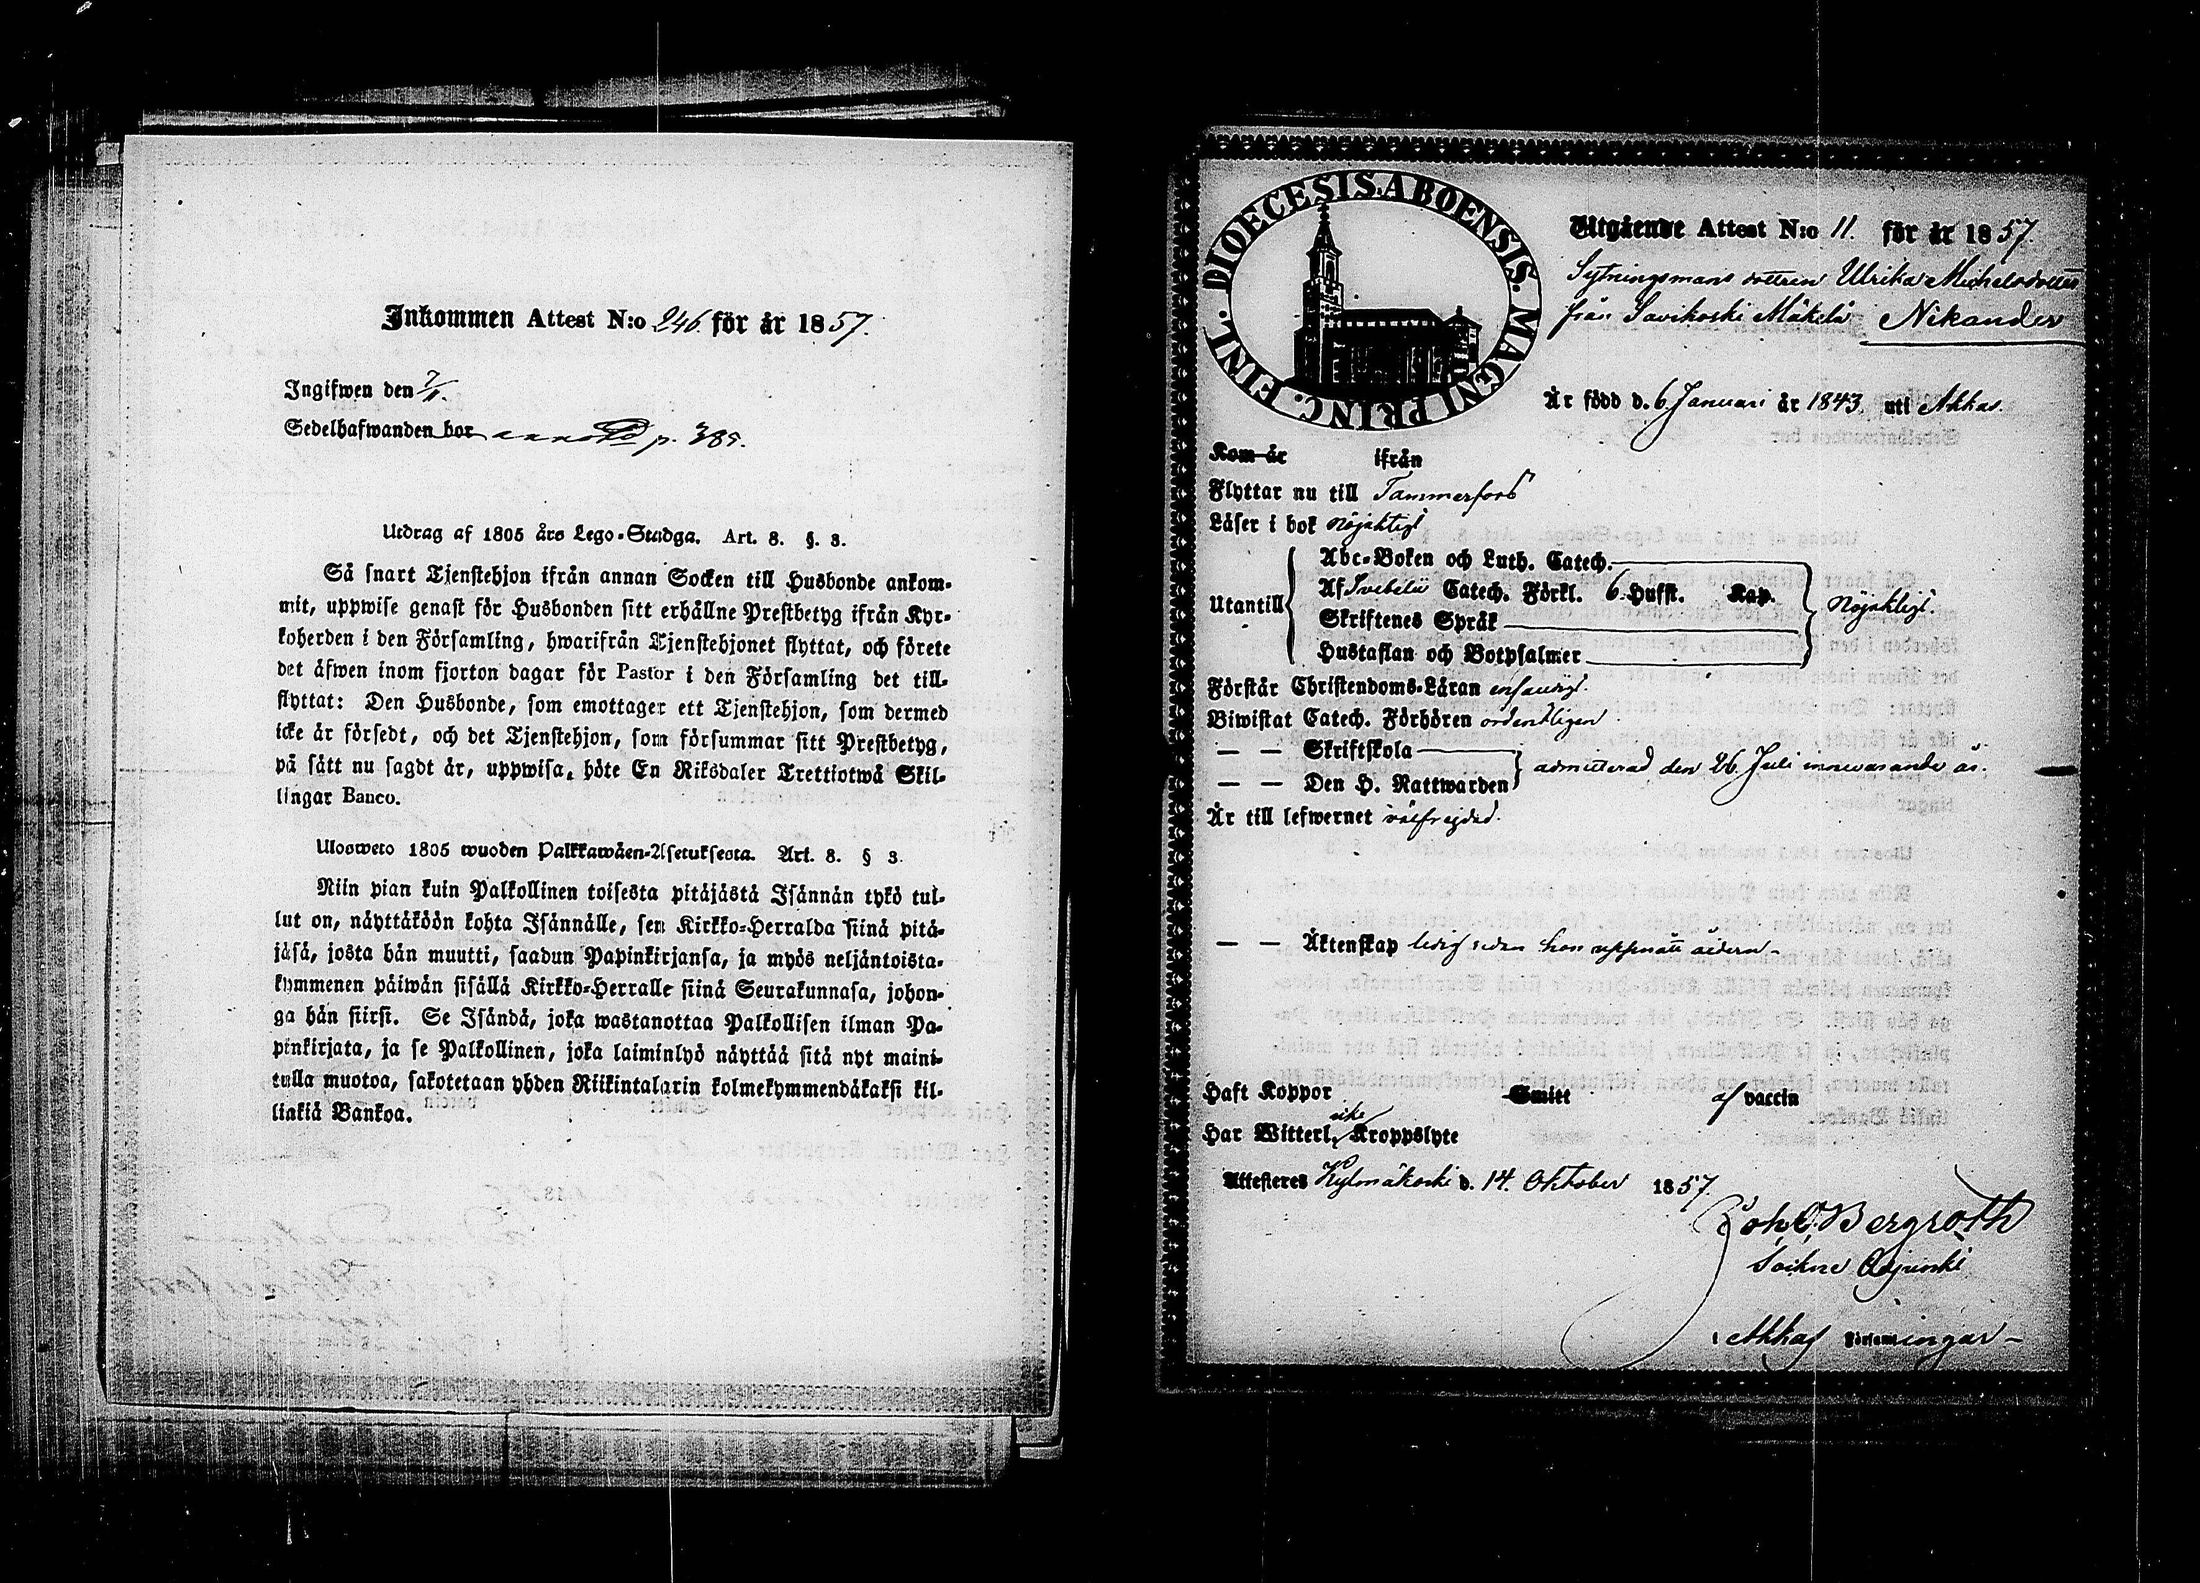 Inkommen Attest N:o 246 för år 1857.
Ingifwen den 7/11.
Sedelhafwanden bor p. 385.
Utdrag af 1805 års Lego-Stadga. Art. 8. §. 3.
Så snart Tjenstehjon ifrån annan Socken till Husbonde ankom-
mit, uppwise genast för Husbonden sitt erhållne Prestbetyg ifrån Kyr-
koherden i den Församling, hwarifrån Tjenstehjonet flyttat, och förete
det äfwen inom fjorton dagar för Pastor i den Församling det till-
flyttat: Den Husbonde, som emottager ett Tjenstehjon, som dermed
icke är försedt, och det Tjenstehjon, som försummar sitt Prestbetyg,
på sätt nu sagdt är, uppwisa, böte En Riksdaler Trettiotwå Skil-
lingar Banco.
Ulosweto 1805 wuoden Palkkawäen-Asetuksesta. Art. 8. § 3.
Niin pian kuin Palkollinen toisesta pitäjästä Isännän tykö tul-
lut on, näyttäköön kohta Isännälle, sen Kirkko-Herralda siinä pitä-
jäsä, josta hän muutti, saadun Papinkirjansa, ja myös neljäntoista-
kymmenen päiwän sisällä Kirkko-Herralle siinä Seurakunnasa, johon-
ga hän siirsi. Se Isändä, joka wastanottaa Palkollisen ilman Pa-
pinkirjata, ja se Palkollinen, joka laiminlyö näyttää sitä nyt maini-
tulla muotoa, sakotetaan yhden Riikintalarin kolmekymmendäkaksi kil-
linkiä Bankoa.
DIOECESIS ABOENSIS. MAGNI PRINC. FINL.
Utgående Attest N:o 11. för år 1857.
Sytningsmans dottren Ulrika Michelsdotter
från Savikoski Mäkelä Nikander
Är född d. 6 Januari år 1843. uti Akkas.
Kom år ifrån
Flyttar nu till Tammerfors
Läser i bok nöjaktigt
Utantill
Abc-Boken och Luth. Catech.
Af Svebelii Catech. Förkl. 6. Hufst. Kap.
Skriftenes Språk
Hustaflan och Botpsalmer
nöjaktigt.
Förstår Christendoms-Läran enfaldigt.
Biwistat Catech. Förhören ordentligen
— — Skriftskola
— — Den H. Nattwarden
admitterad den 26. Juli innevarande år.
Är till lefwernet välfrejdad.
— — Äktenskap ledig sedan hon uppnått åldern -
Haft Koppor Smitt af vaccin
Har Witterl. icke Kroppslyte
Attesteres Kylmäkoski d. 14. Oktober 1857.
Joh. C. Bergroth
Sockne Adjunkt
i Akkas Församlingar -